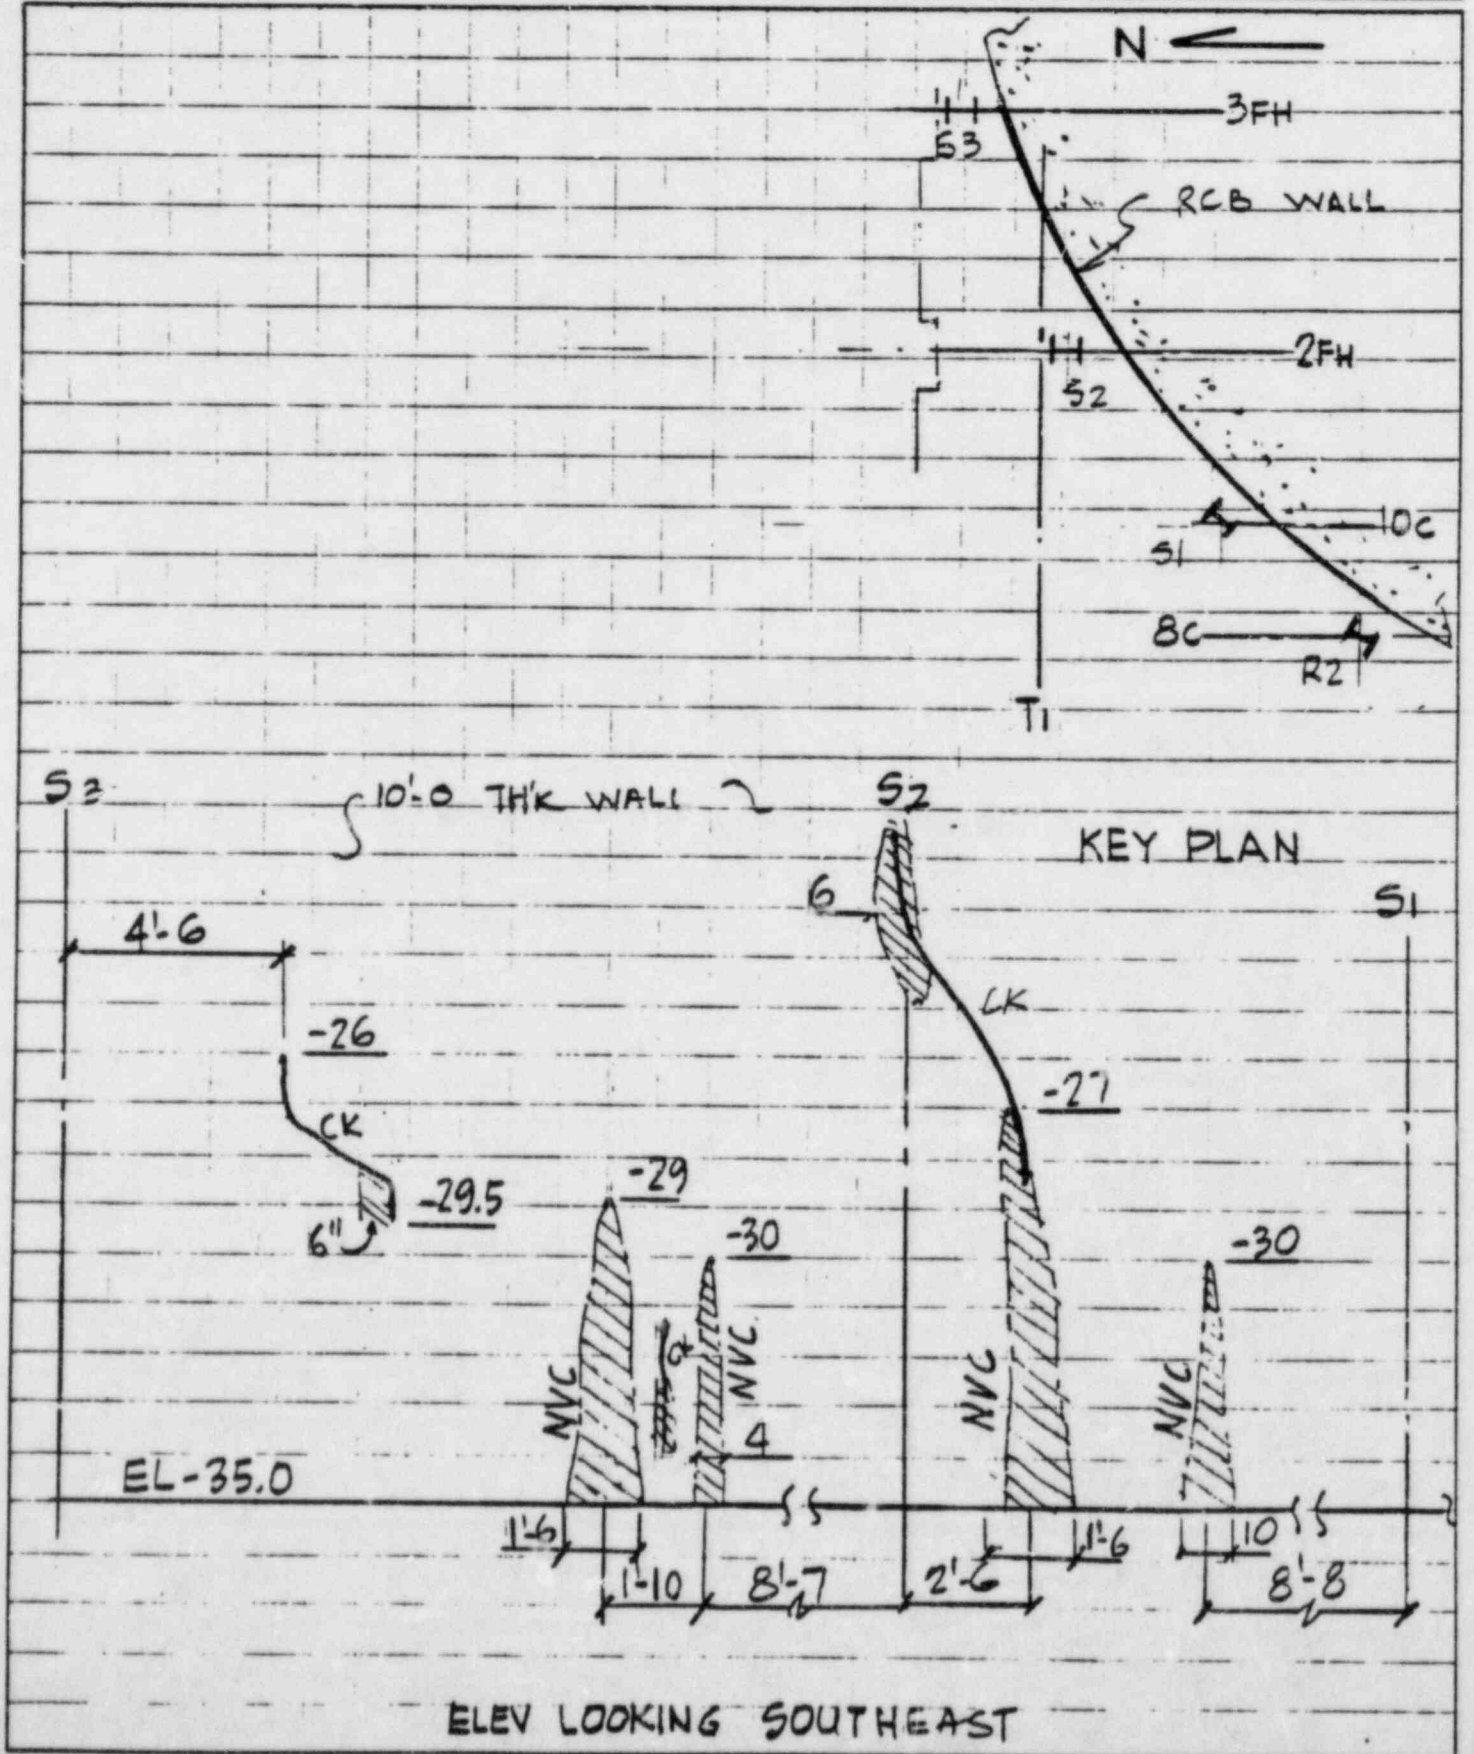 N
3FH
S3
RCB WALL
2FH
S2
10C
S1
8C
R2
T1
S3
10'-0 TH'K WALL
S2
KEY PLAN
6
S1
4'-6
CK
-26
-27
CK
-29
-29.5
6"
-30
-30
NVC
NVC
NVC
NVC
4
EL-35.0
1'-6
1'-6
10
1'-10
8'-7
2'-6
8'-8
ELEV LOOKING SOUTHEAST